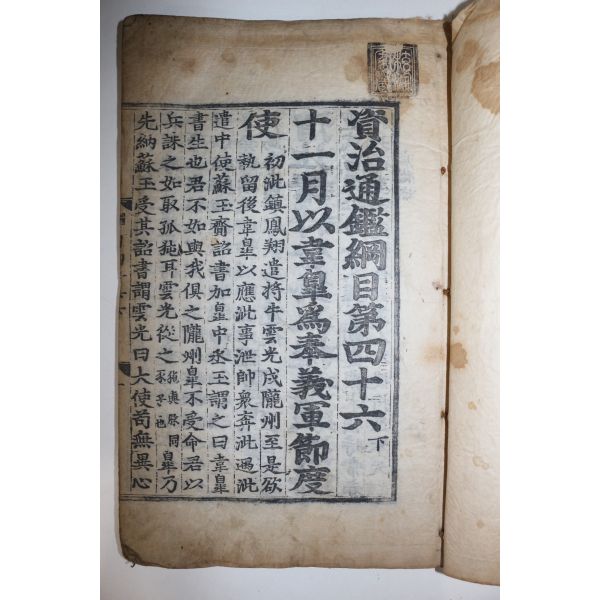 資治通鑑綱目第四十六下
十一月以韋皐爲奉義軍節度
使初泚鎮鳳翔遣将牛雲光戍隴州至是欲
執留後韋皐以應泚事泄帥衆奔泚遇泚
遣中使蘇玉齎詔書加皐中丞玉謂之曰韋皐
書生也君不如與我俱之隴州皐不受命君以
兵誅之如取孤㹠耳雲光從之㹠與豚同豕子也皐乃
先納蘇玉受其詔書謂雲光曰大使苟無異心